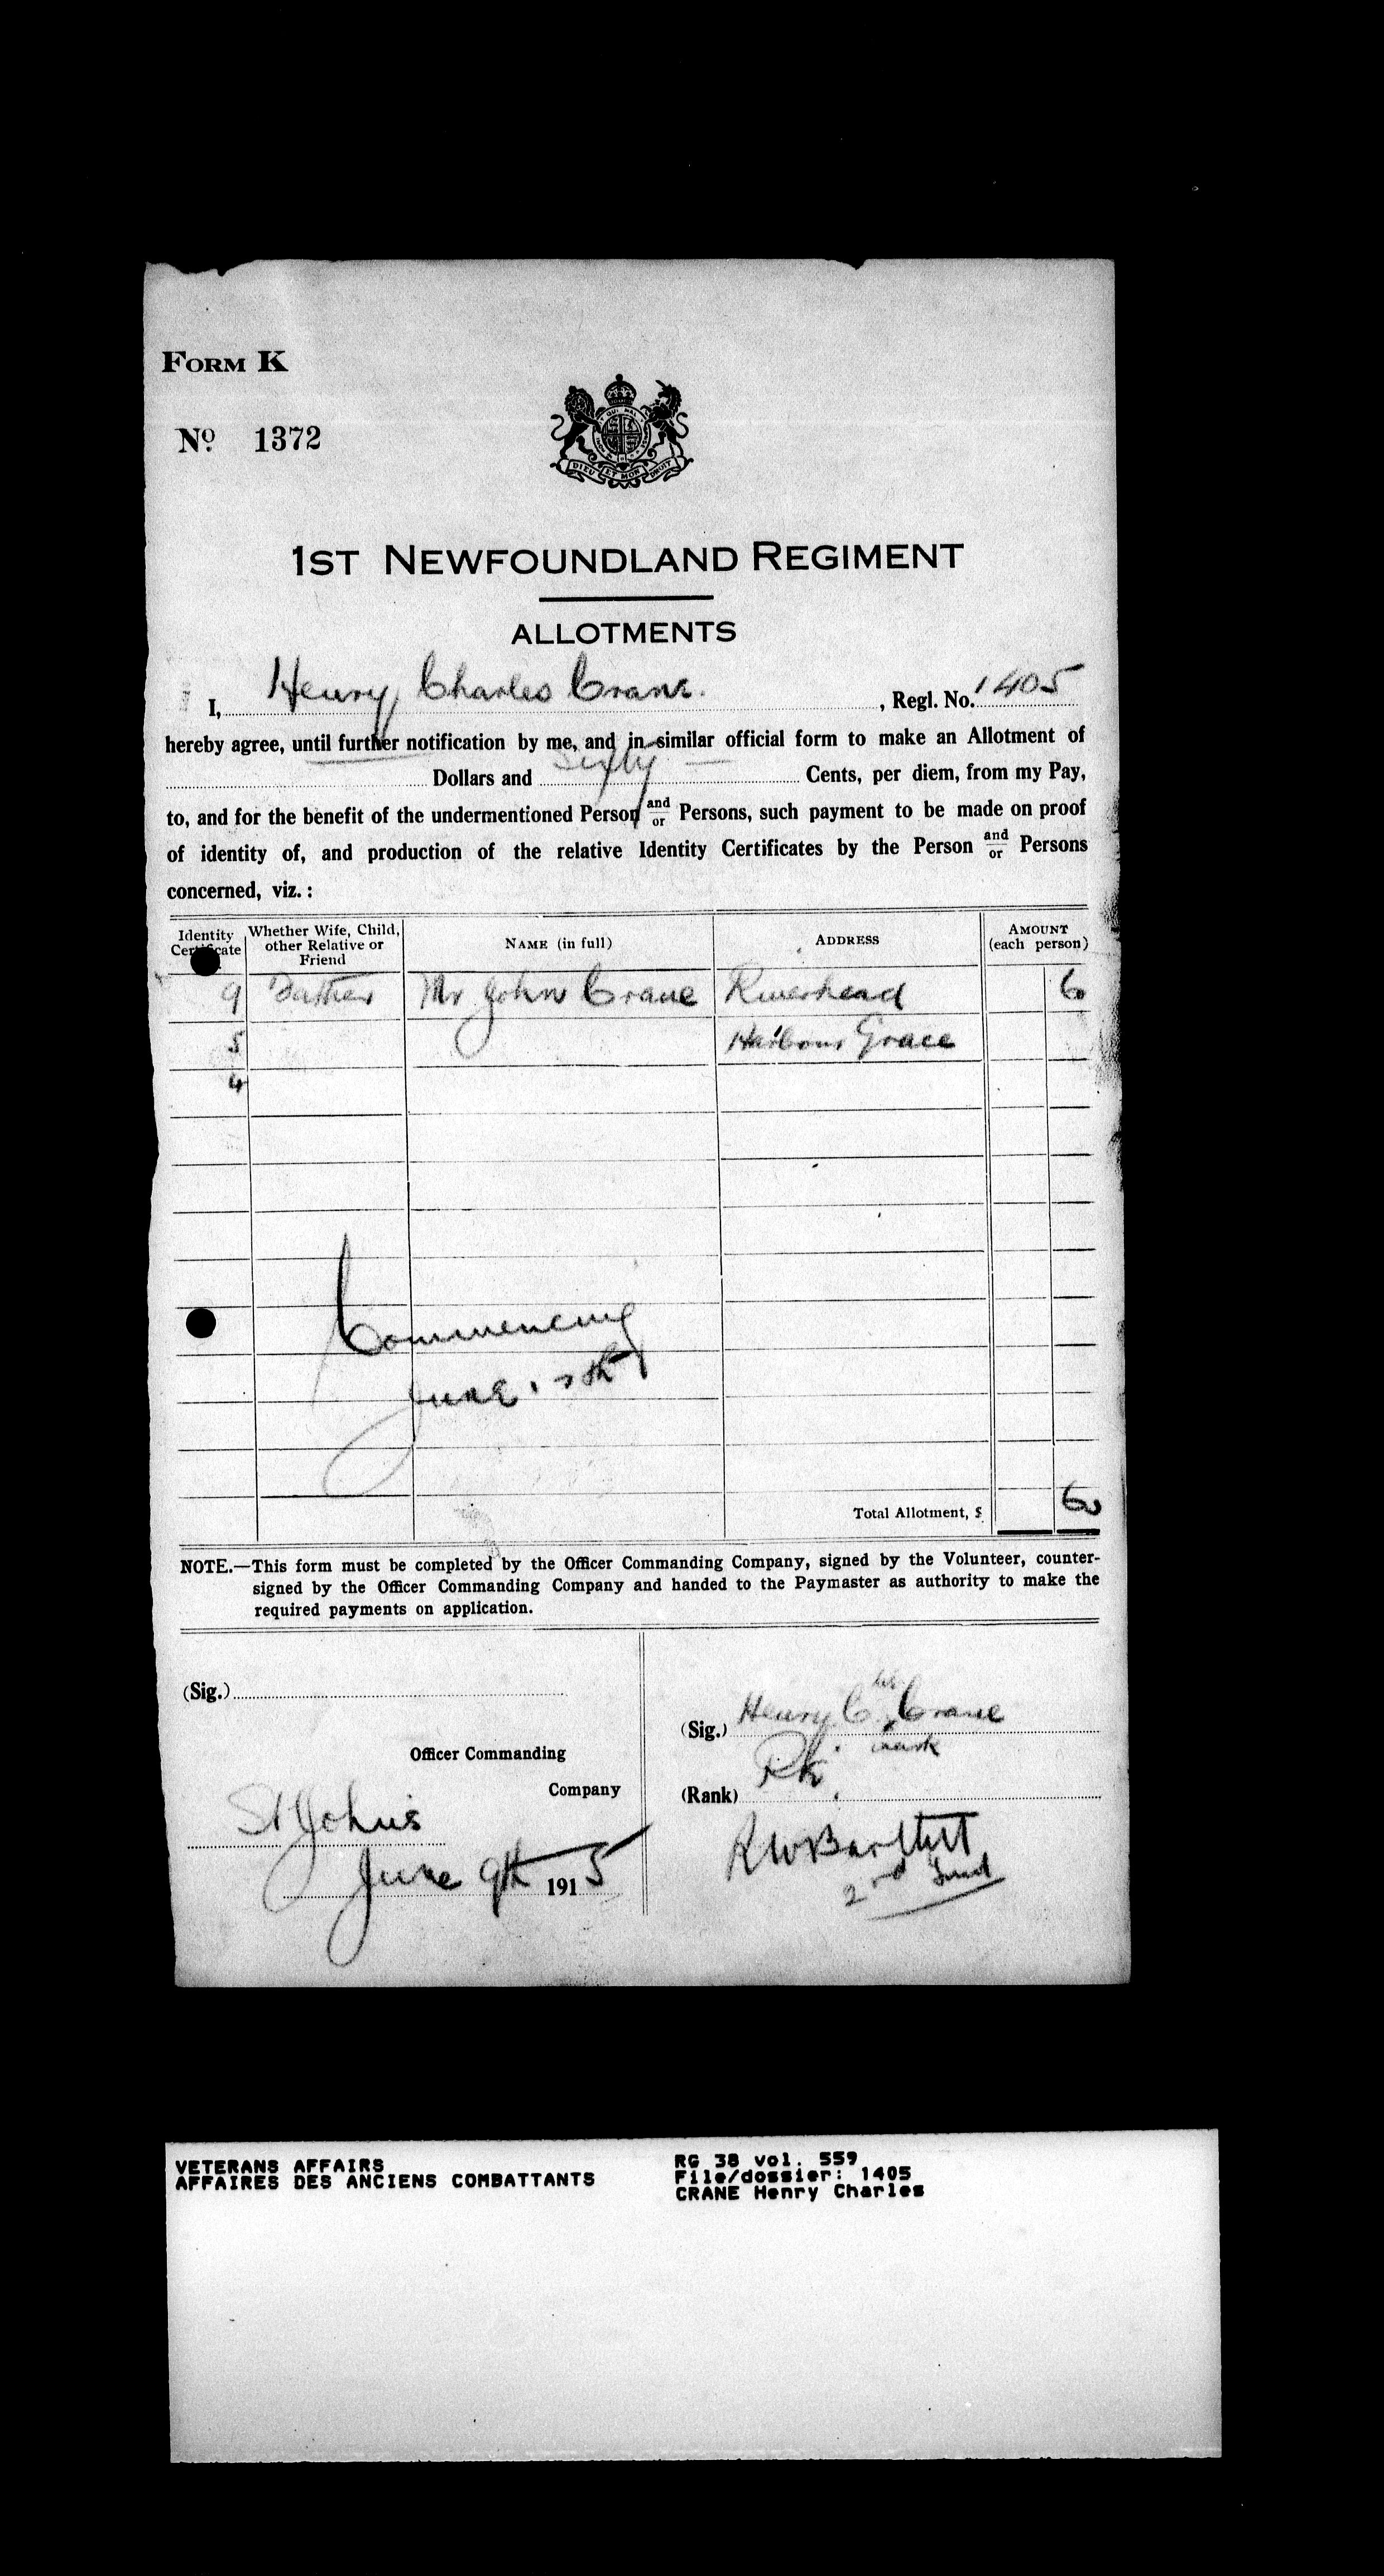 FORM K
Nº 1372
QUI MAL
DIEU ET MON DROIT
1ST NEWFOUNDLAND REGIMENT
ALLOTMENTS
I, Henry Charles Crane. , Regl. No. 1405
hereby agree, until further notification by me, and in similar official form to make an Allotment of
Dollars and Sixty Cents, per diem, from my Pay,
to, and for the benefit of the undermentioned Person and/or Persons, such payment to be made on proof
of identity of, and production of the relative Identity Certificates by the Person and/or Persons
concerned, viz. :
Identity Certificate
Whether Wife, Child, other Relative or Friend
NAME (in full)
ADDRESS
AMOUNT (each person)
9 Father Mr John Crane Riverhead 60
5 Harbour Grace
4
Commencing
June
Total Allotment, $ 60
NOTE.—This form must be completed by the Officer Commanding Company, signed by the Volunteer, counter-
signed by the Officer Commanding Company and handed to the Paymaster as authority to make the
required payments on application.
(Sig.)
Officer Commanding
Company
St John's
June 9th 1915
his
(Sig.) Henry C. Crane
mark
(Rank) Pte.
R W Bartlett
2nd Lieut
VETERANS AFFAIRS
AFFAIRES DES ANCIENS COMBATTANTS
RG 38 vol. 559
File/dossier: 1405
CRANE Henry Charles